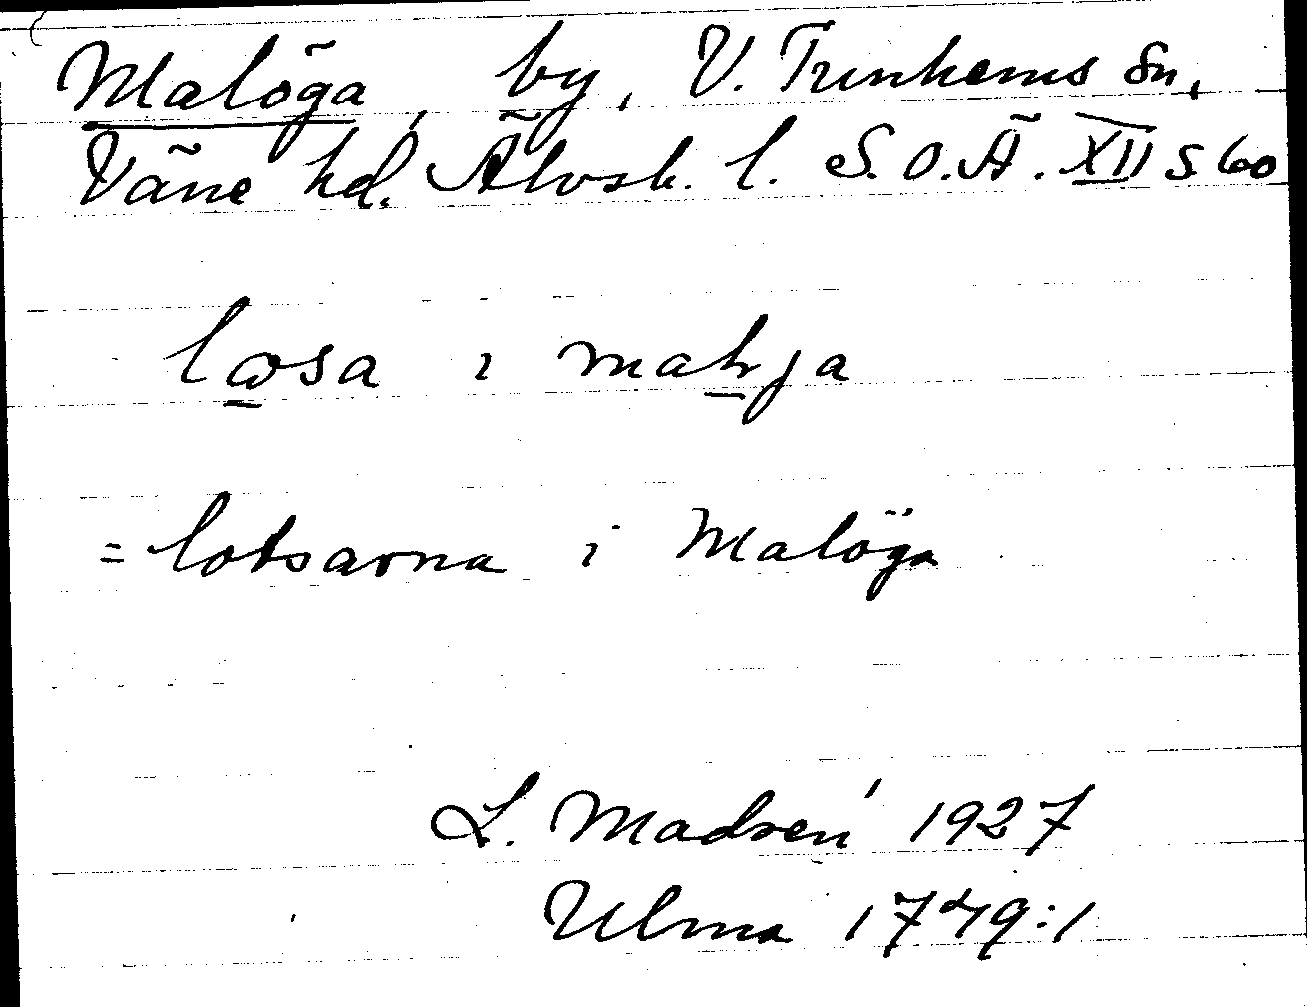 Malöga, by, V. Tunhems sn,
Väne hd. Älvsb. l. S.O.Ä. XII s. 60
i
= lotsarna i Malöga
L. Madsén 1927
Ulma 1749:1